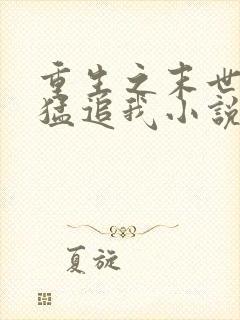 重生之末世
猛追我小說
夏旋